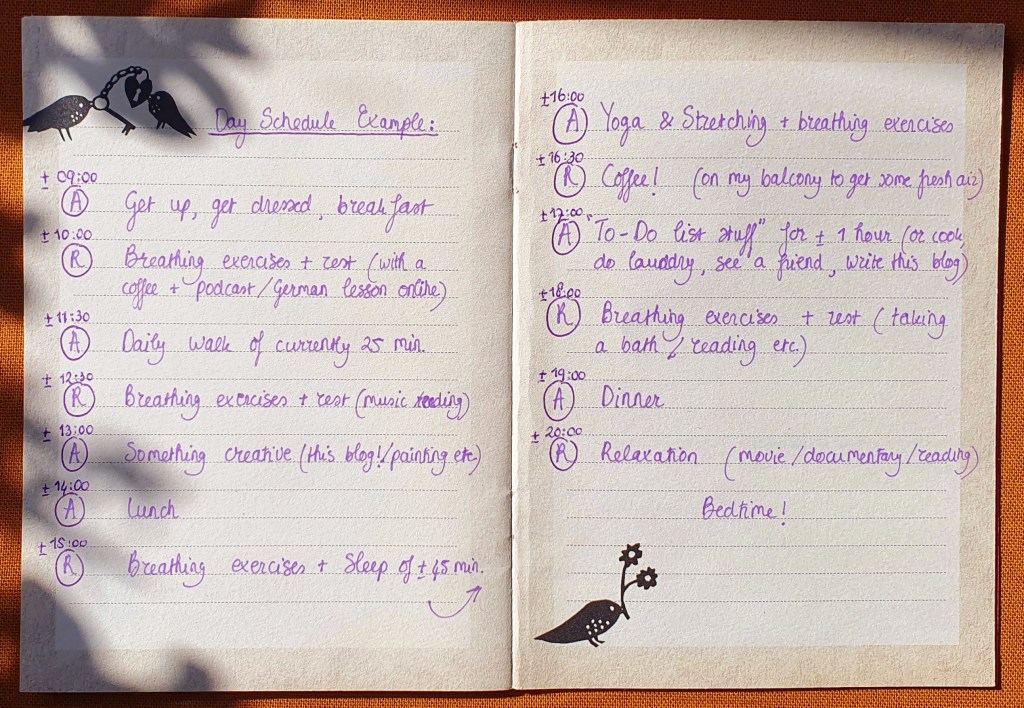 Day Schedule Example:
± 09:00
A Get up, get dressed, breakfast
± 10:00
R Breathing exercises + rest (with a
coffee + podcast/German lesson online)
± 11:30
A Daily walk of currently 25 min.
± 12:30
R Breathing exercises + rest (music reading)
± 13:00
A Something creative (this blog!/painting etc)
± 14:00
A Lunch
± 15:00
R Breathing exercises + Sleep of ± 45 min.
± 16:00
A Yoga & Stretching + breathing exercises
± 16:30
R Coffee! (on my balcony to get some fresh air)
± 17:00
A "To-Do list stuff" for ± 1 hour (or cook,
do laundry, see a friend, write this blog)
± 18:00
R Breathing exercises + rest (taking
a bath / reading etc.)
± 19:00
A Dinner
± 20:00
R Relaxation (movie/documentary/reading)
Bedtime!